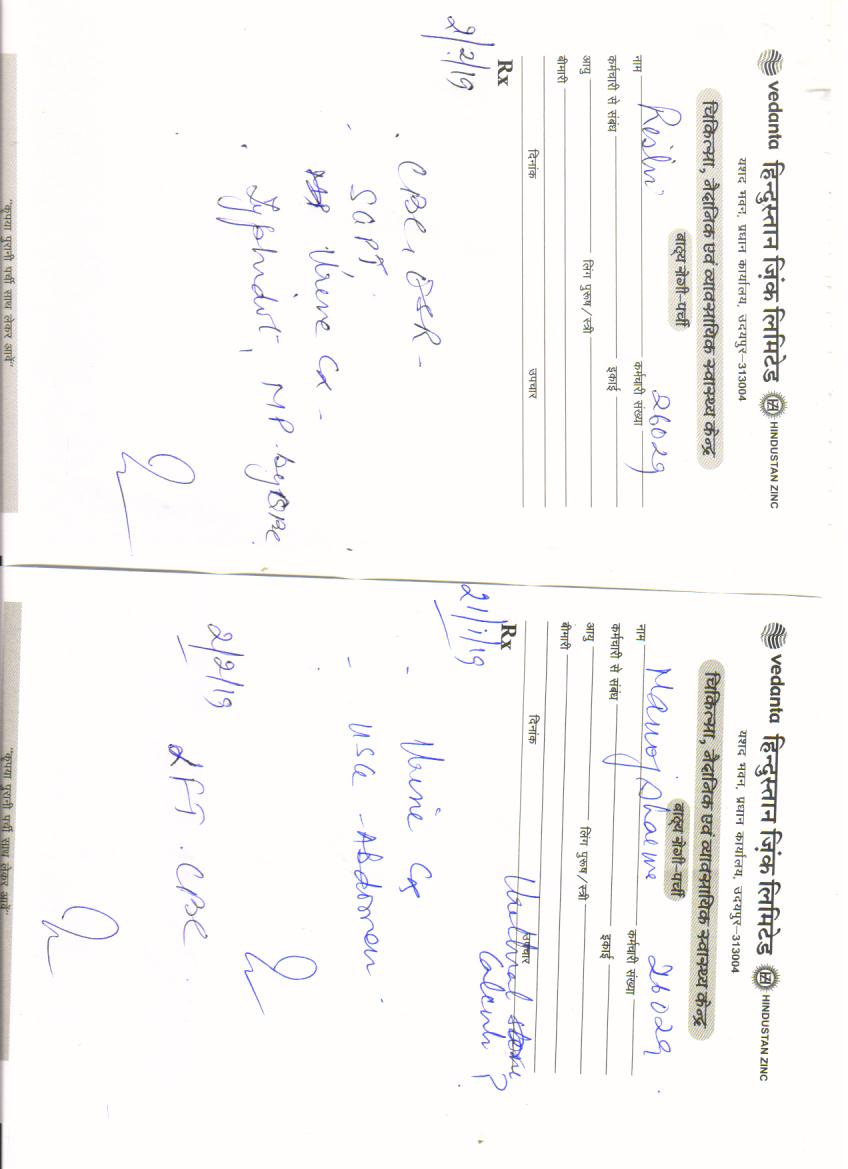 vedanta हिन्दुस्तान ज़िंक लिमिटेड HINDUSTAN ZINC
यशद भवन, प्रधान कार्यालय, उदयपुर–313004
चिकित्सा, नैदानिक एवं व्यावसायिक स्वास्थ्य केन्द्र
बाह्य रोगी-पर्ची
नाम कर्मचारी संख्या 26029
कर्मचारी से संबंध इकाई
आयु लिंग पुरूष/स्त्री
बीमारी
दिनांक उपचार
Rx
2/2/19
CBC, ESR
SGPT,
Urine Cx
Typhidot, MP by
"कृपया पुरानी पर्ची साथ लेकर आवें"
vedanta हिन्दुस्तान ज़िंक लिमिटेड HINDUSTAN ZINC
यशद भवन, प्रधान कार्यालय, उदयपुर–313004
चिकित्सा, नैदानिक एवं व्यावसायिक स्वास्थ्य केन्द्र
बाह्य रोगी-पर्ची
नाम Manoj Sharma कर्मचारी संख्या 26029
कर्मचारी से संबंध इकाई
आयु लिंग पुरूष/स्त्री
बीमारी
दिनांक उपचार
Urethral stone
Calculi ?
Rx
21/1/19
Urine Cx
USG - Abdomen
2/2/19 LFT. CBC
"कृपया पुरानी पर्ची साथ लेकर आवें"